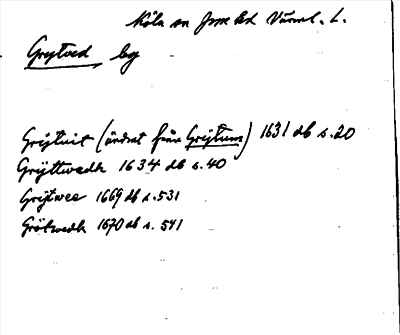 Köla sn Jösse hd Värml. l.
Grytved by
Grijtuit (ändrat från Grijtum) 1631 db s. 20
Grijttwedh 1634 db s. 40
Grijtwee 1669 db s. 531
Grötwedh 1670 db s. 541